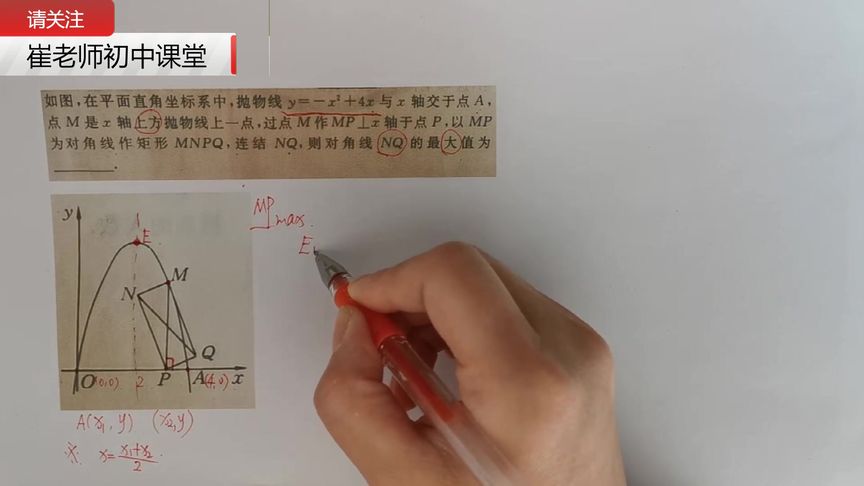 请关注
崔老师初中课堂
如图,在平面直角坐标系中,抛物线 y=-x²+4x 与 x 轴交于点 A,
点 M 是 x 轴上方抛物线上一点,过点 M 作 MP⊥x 轴于点 P,以 MP
为对角线作矩形 MNPQ,连结 NQ,则对角线 NQ 的最大值为
______.
MP max.
E
y
E
M
N
Q
O(0,0) 2 P A(4,0) x
A(x₁, y) (x₂, y)
※ x=(x₁+x₂)/2.